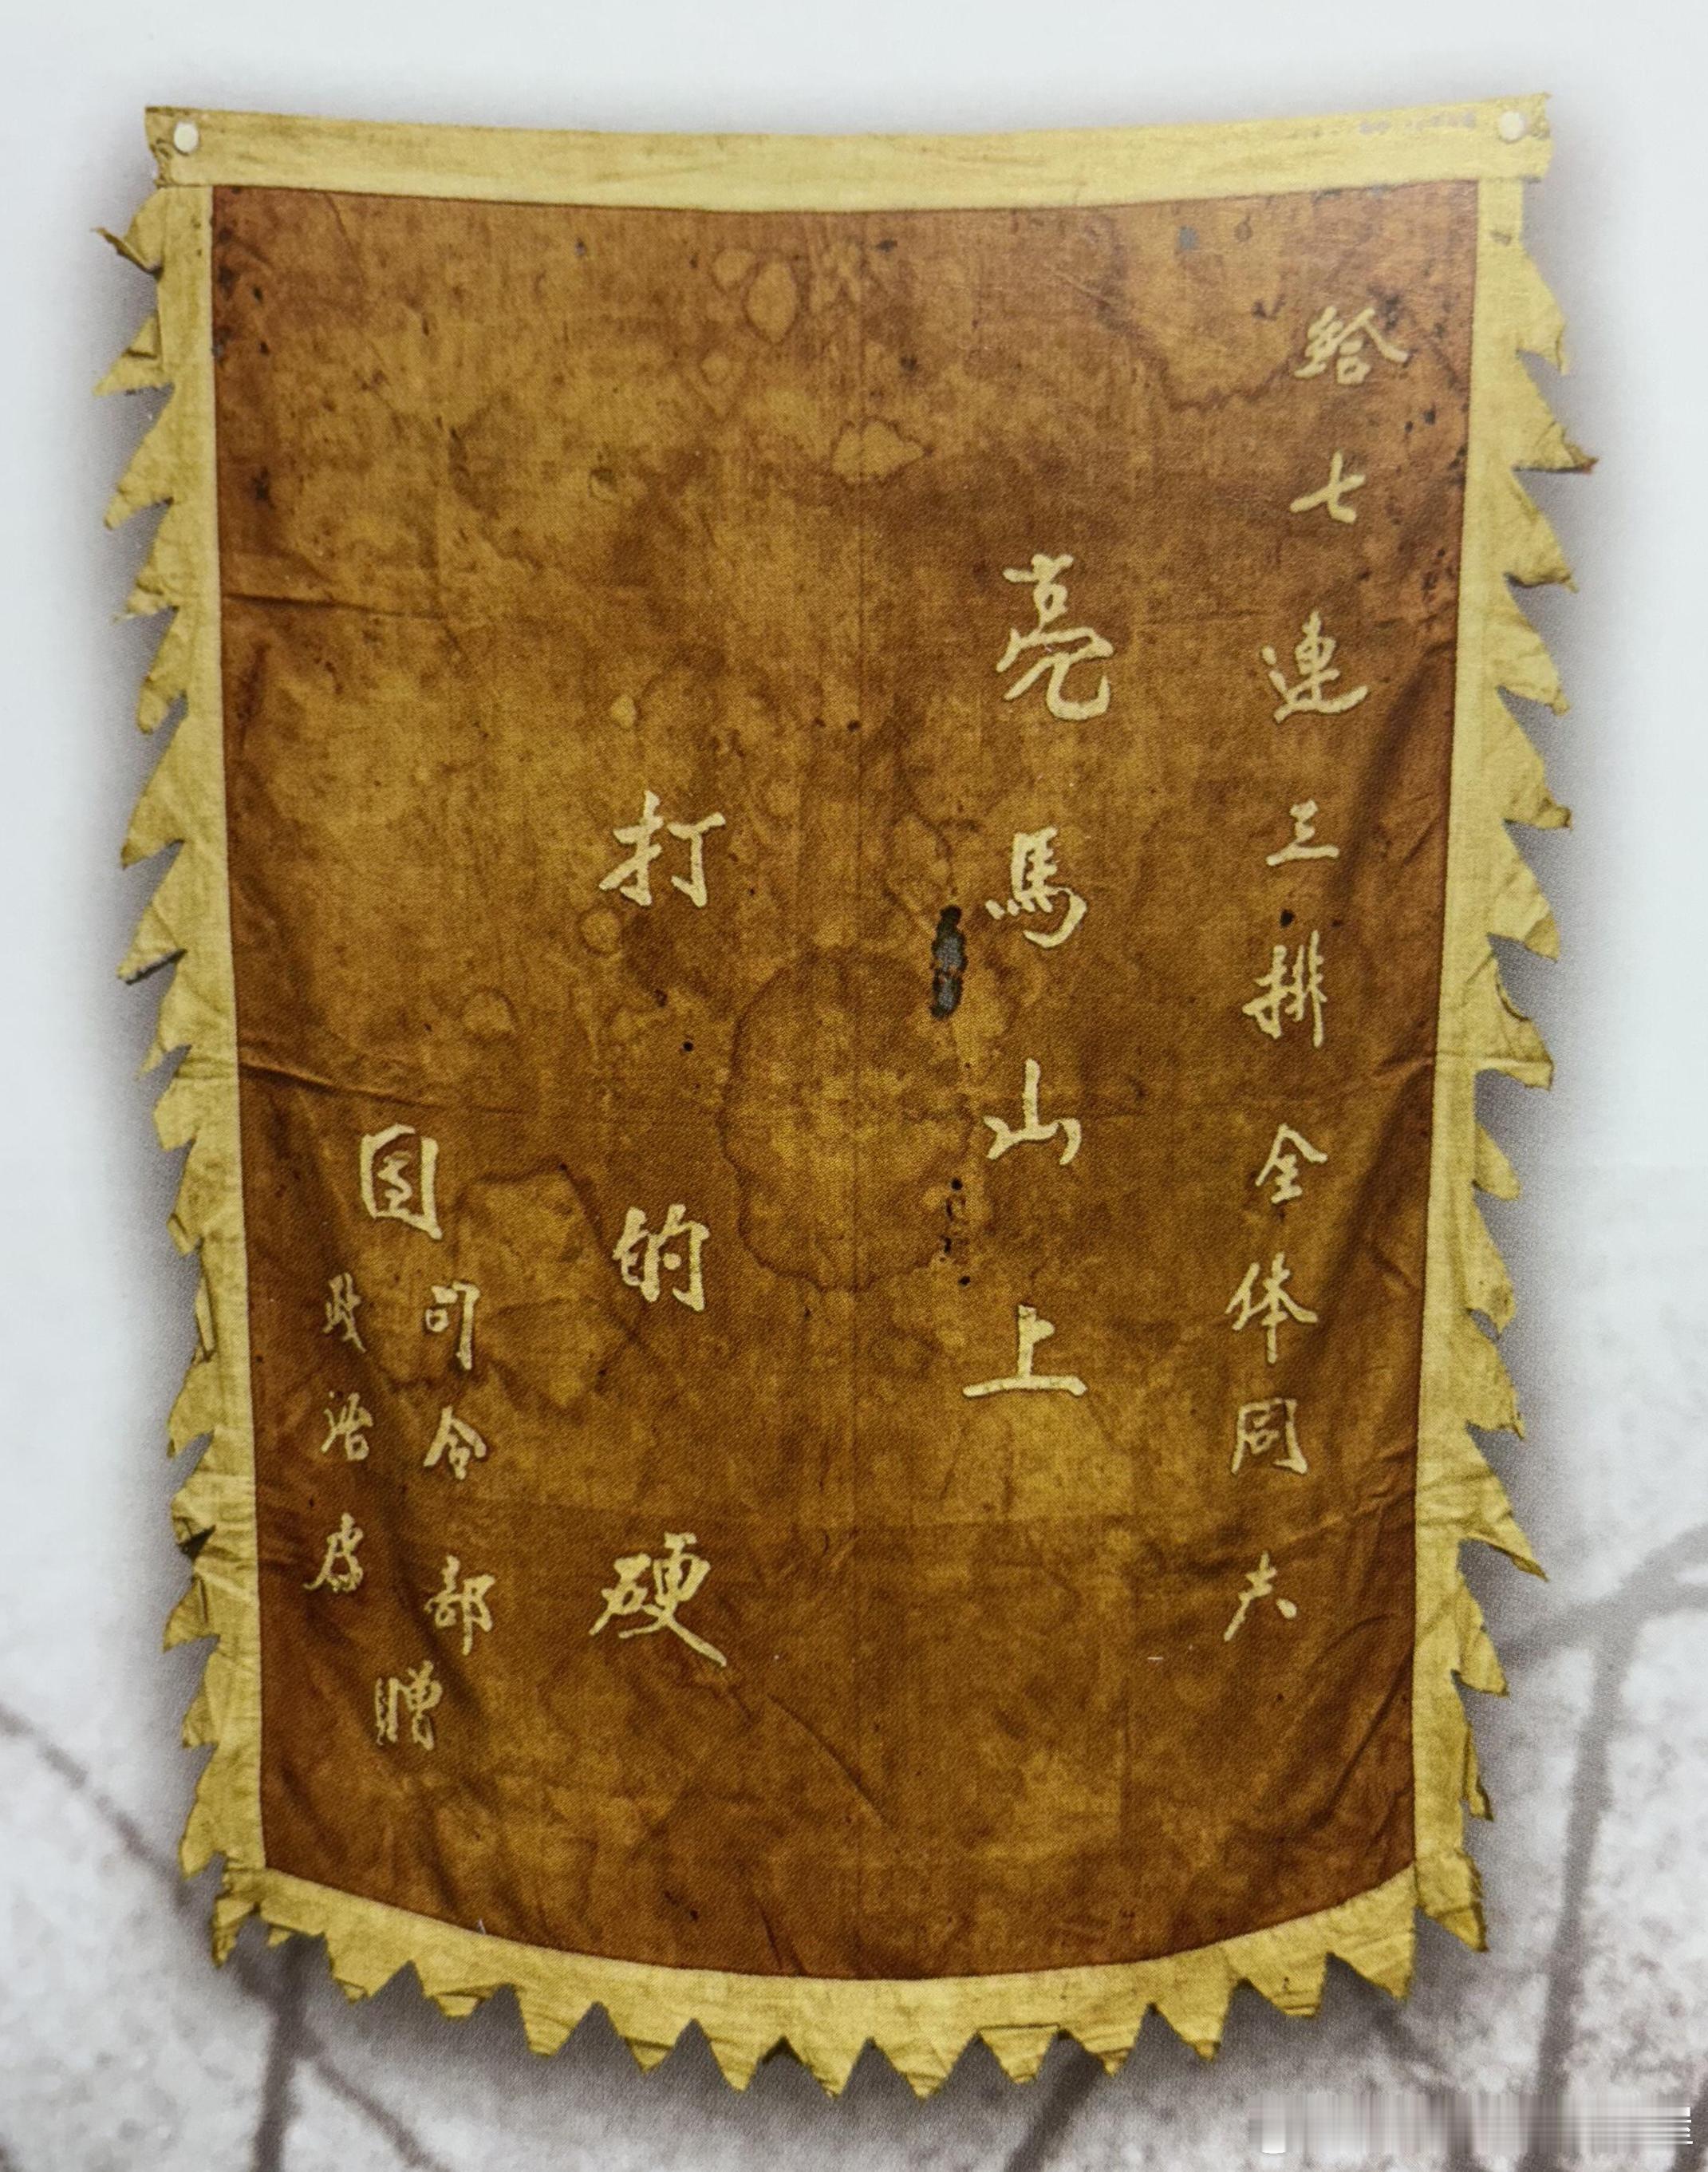 給七連三排全体同志
亮馬山上
打的硬
团
司令部
政治處
贈